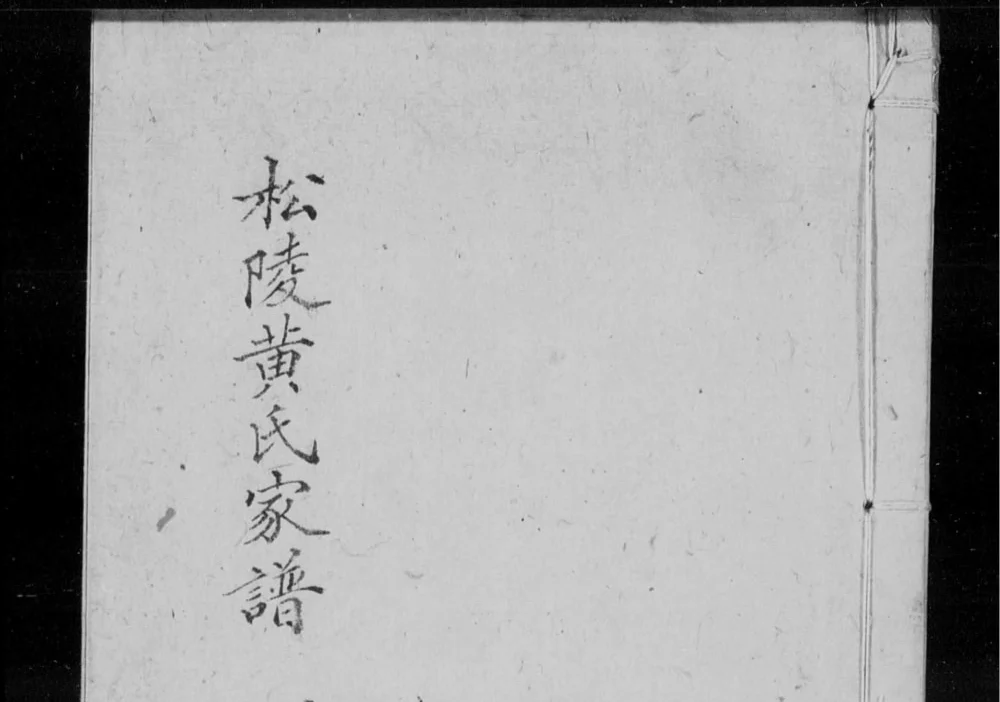 松陵黄氏家譜